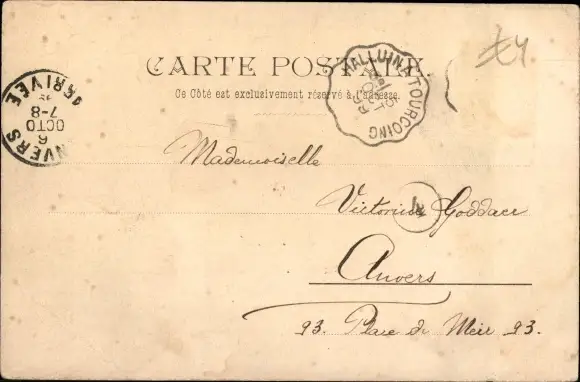 £4
CARTE POSTALE.
Ce Côté est exclusivement réservé à l'adresse.
HALLUIN A TOURCOING
ANVERS
6
OCTO
7-8
ARRIVÉE
Mademoiselle
Victorine Goddaer
Anvers
93. Place de Meir 93.